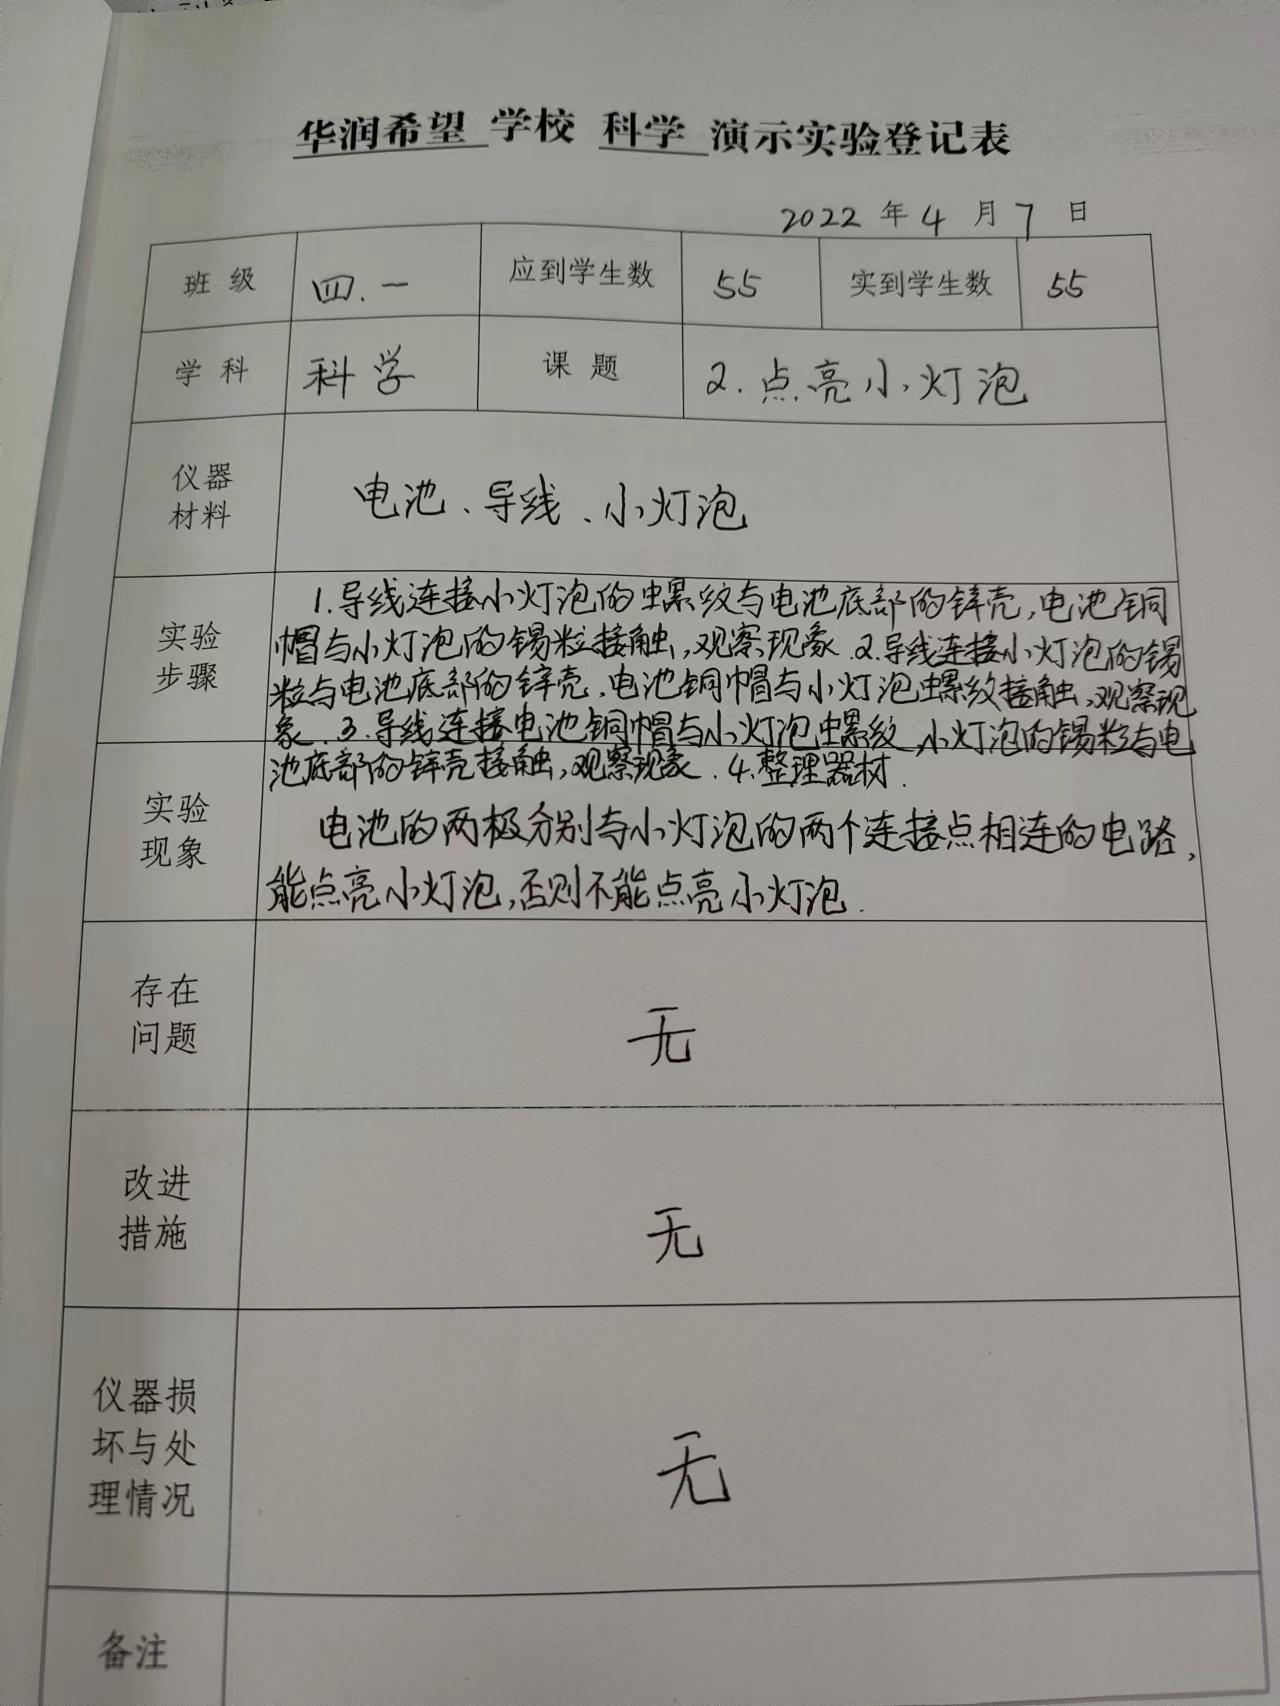 华润希望 学校 科学 演示实验登记表
2022 年 4 月 7 日
班 级 四.一 应到学生数 55 实到学生数 55
学 科 科学 课 题 2.点亮小灯泡
仪器
材料
电池、导线、小灯泡
实验
步骤
1.导线连接小灯泡的螺纹与电池底部的锌壳,电池铜
帽与小灯泡的锡粒接触,观察现象.2.导线连接小灯泡的锡
粒与电池底部的锌壳,电池铜帽与小灯泡螺纹接触,观察现
象.3.导线连接电池铜帽与小灯泡螺纹,小灯泡的锡粒与电
池底部的锌壳接触,观察现象.4.整理器材.
实验
现象
电池的两极分别与小灯泡的两个连接点相连的电路,
能点亮小灯泡,否则不能点亮小灯泡.
存在
问题
无
改进
措施
无
仪器损
坏与处
理情况
无
备注